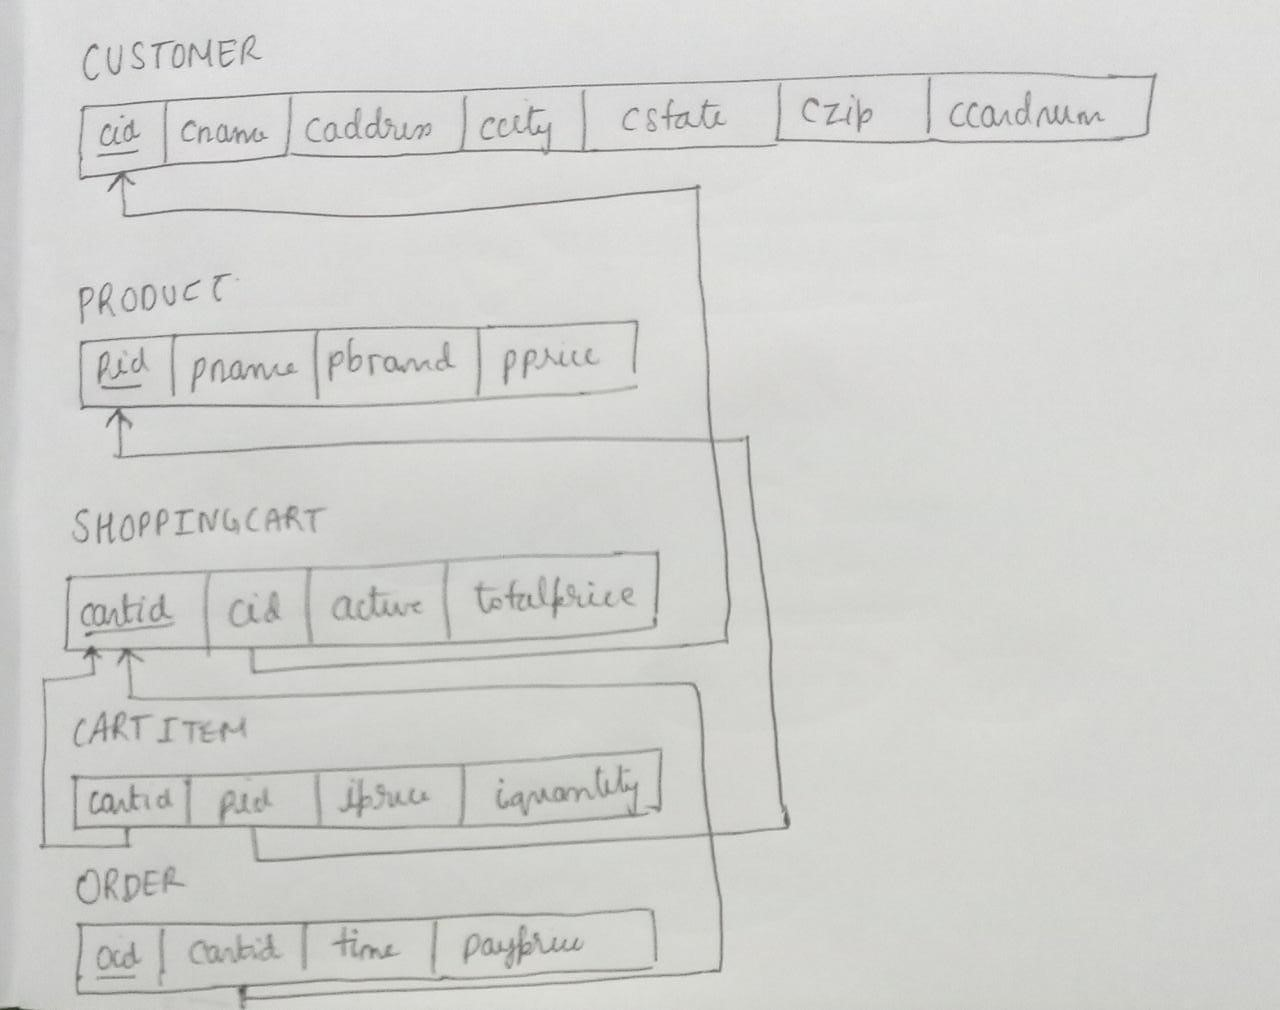 CUSTOMER
cid cname caddress ccity cstate czip ccardnum
PRODUCT
pid pname pbrand pprice
SHOPPINGCART
cartid cid active totalprice
CARTITEM
cartid pid iprice iquantity
ORDER
oid cartid time payprice